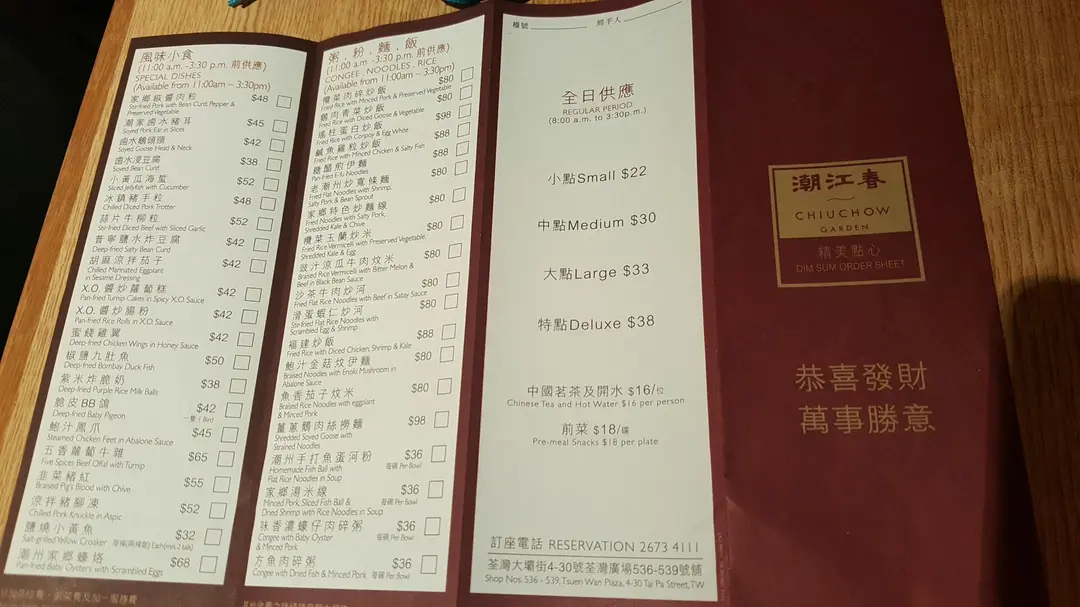 風味小食
(11:00 a.m. -3:30 p.m. 前供應)
SPECIAL DISHES
(Available from 11:00am – 3:30pm)
家鄉椒醬肉粒 $48
Stir-fried Pork with Bean Curd, Pepper &
Preserved Vegetable
潮家鹵水豬耳 $45
Soyed Pork Ear in Slices
鹵水鵝頭頸 $42
Soyed Goose Head & Neck
鹵水浸豆腐 $38
Soyed Bean Curd
小黃瓜海蜇 $52
Sliced Jellyfish with Cucumber
冰鎮豬手粒 $48
Chilled Diced Pork Trotter
蒜片牛柳粒 $52
Stir-fried Diced Beef with Sliced Garlic
普寧鹽水炸豆腐 $42
Deep-fried Salty Bean Curd
胡麻涼拌茄子 $42
Chilled Marinated Eggplant
in Sesame Dressing
X.O. 醬炒蘿蔔糕 $42
Pan-fried Turnip Cakes in Spicy X.O Sauce
X.O. 醬炒腸粉 $42
Pan-fried Rice Rolls in X.O. Sauce
蜜餞雞翼 $42
Deep-fried Chicken Wings in Honey Sauce
椒鹽九肚魚 $50
Deep-fried Bombay Duck Fish
紫米炸脆奶 $38
Deep-fried Purple Rice Milk Balls
脆皮BB鴿 $42
Deep-fried Baby Pigeon 一隻 1 Bird
鮑汁鳳爪 $45
Steamed Chicken Feet in Abalone Sauce
五香蘿蔔牛雜 $65
Five Spices Beef Offal with Turnip
韭菜豬紅 $55
Braised Pig's Blood with Chive
涼拌豬腳凍 $52
Chilled Pork Knuckle in Aspic
鹽燒小黃魚 $32
Salt-grilled Yellow Croaker Each(min. 2 tails)
潮州家鄉蠔烙 $68
Pan-fried Baby Oysters with Scrambled Eggs
粥．粉．麵．飯
(11:00 a.m. -3:30 p.m. 前供應)
CONGEE . NOODLES . RICE
(Available from 11:00am – 3:30pm)
欖菜肉碎炒飯 $80
Fried Rice with Minced Pork & Preserved Vegetable
鵝肉青菜炒飯 $80
Fried Rice with Diced Goose & Vegetable
瑤柱蛋白炒飯 $98
Fried Rice with Conpoy & Egg White
鹹魚雞粒炒飯 $88
Fried Rice with Minced Chicken & Salty Fish
糖醋煎伊麵 $88
Pan-fried E-fu Noodles
老潮州炒寬條麵 $80
Fried Flat Noodles with Shrimp,
Salty Pork & Bean Sprout
家鄉特色炒麵線 $80
Fried Noodles with Salty Pork,
Shredded Kale & Chive
欖菜玉蘭炒米 $80
Fried Rice Vermicelli with Preserved Vegetable,
Shredded Kale & Egg
豉汁涼瓜牛肉炆米 $80
Braised Rice Vermicelli with Bitter Melon &
Beef in Black Bean Sauce
沙茶牛肉炒河 $80
Fried Flat Rice Noodles with Beef in Satay Sauce
滑蛋蝦仁炒河 $80
Stir-fried Flat Rice Noodles with
Scrambled Egg & Shrimp
福建炒飯 $88
Fried Rice with Diced Chicken, Shrimp & Kale
鮑汁金菇炆伊麵 $80
Braised Noodles with Enoki Mushroom in
Abalone Sauce
魚香茄子炆米 $80
Braised Rice Noodles with eggplant
& Minced Pork
薑蔥鵝肉絲撈麵 $98
Shredded Soyed Goose with
Strained Noodles
潮州手打魚蛋河粉 $36
Homemade Fish Ball with 每碗 Per Bowl
Flat Rice Noodles in Soup
家鄉湯米線 $36
Minced Pork, Sliced Fish Ball & 每碗 Per Bowl
Dried Shrimp with Rice Noodles in Soup
味香濃蠔仔肉碎粥 $36
Congee with Baby Oyster 每碗 Per Bowl
& Minced Pork
方魚肉碎粥 $36
Congee with Dried Fish & Minced Pork 每碗 Per Bowl
檯號 經手人
全日供應
REGULAR PERIOD
(8:00 a.m. to 3:30p.m.)
小點Small $22
中點Medium $30
大點Large $33
特點Deluxe $38
中國茗茶及開水 $16/位
Chinese Tea and Hot Water $16 per person
前菜 $18/碟
Pre-meal Snacks $18 per plate
訂座電話 RESERVATION 2673 4111
荃灣大壩街4-30號荃灣廣場536-539號舖
Shop Nos. 536 - 539, Tsuen Wan Plaza, 4-30 Tai Pa Street, TW
潮江春
CHIUCHOW
GARDEN
精美點心
DIM SUM ORDER SHEET
恭喜發財
萬事勝意